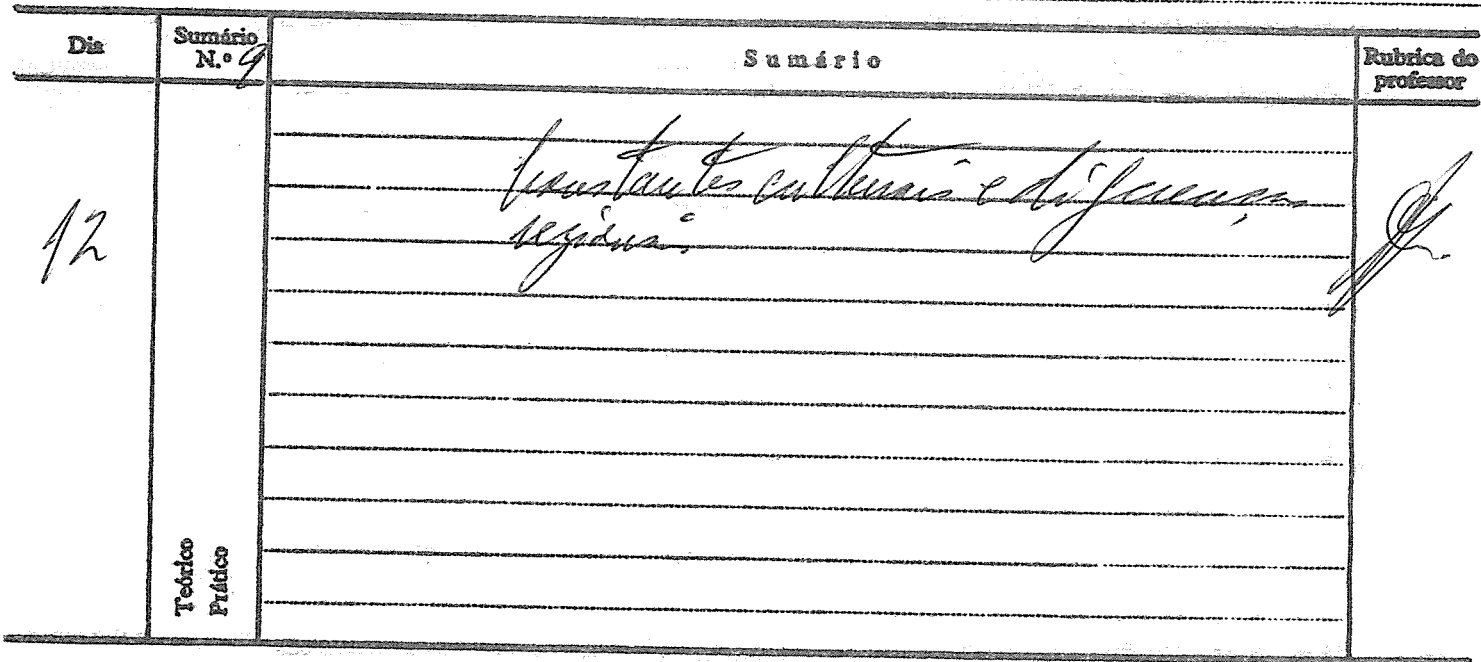 Dia
Sumário
N.º 9
Sumário
Rubrica do
professor
12
Constantes culturais e diferenças
regionais.
Teórico
Prático